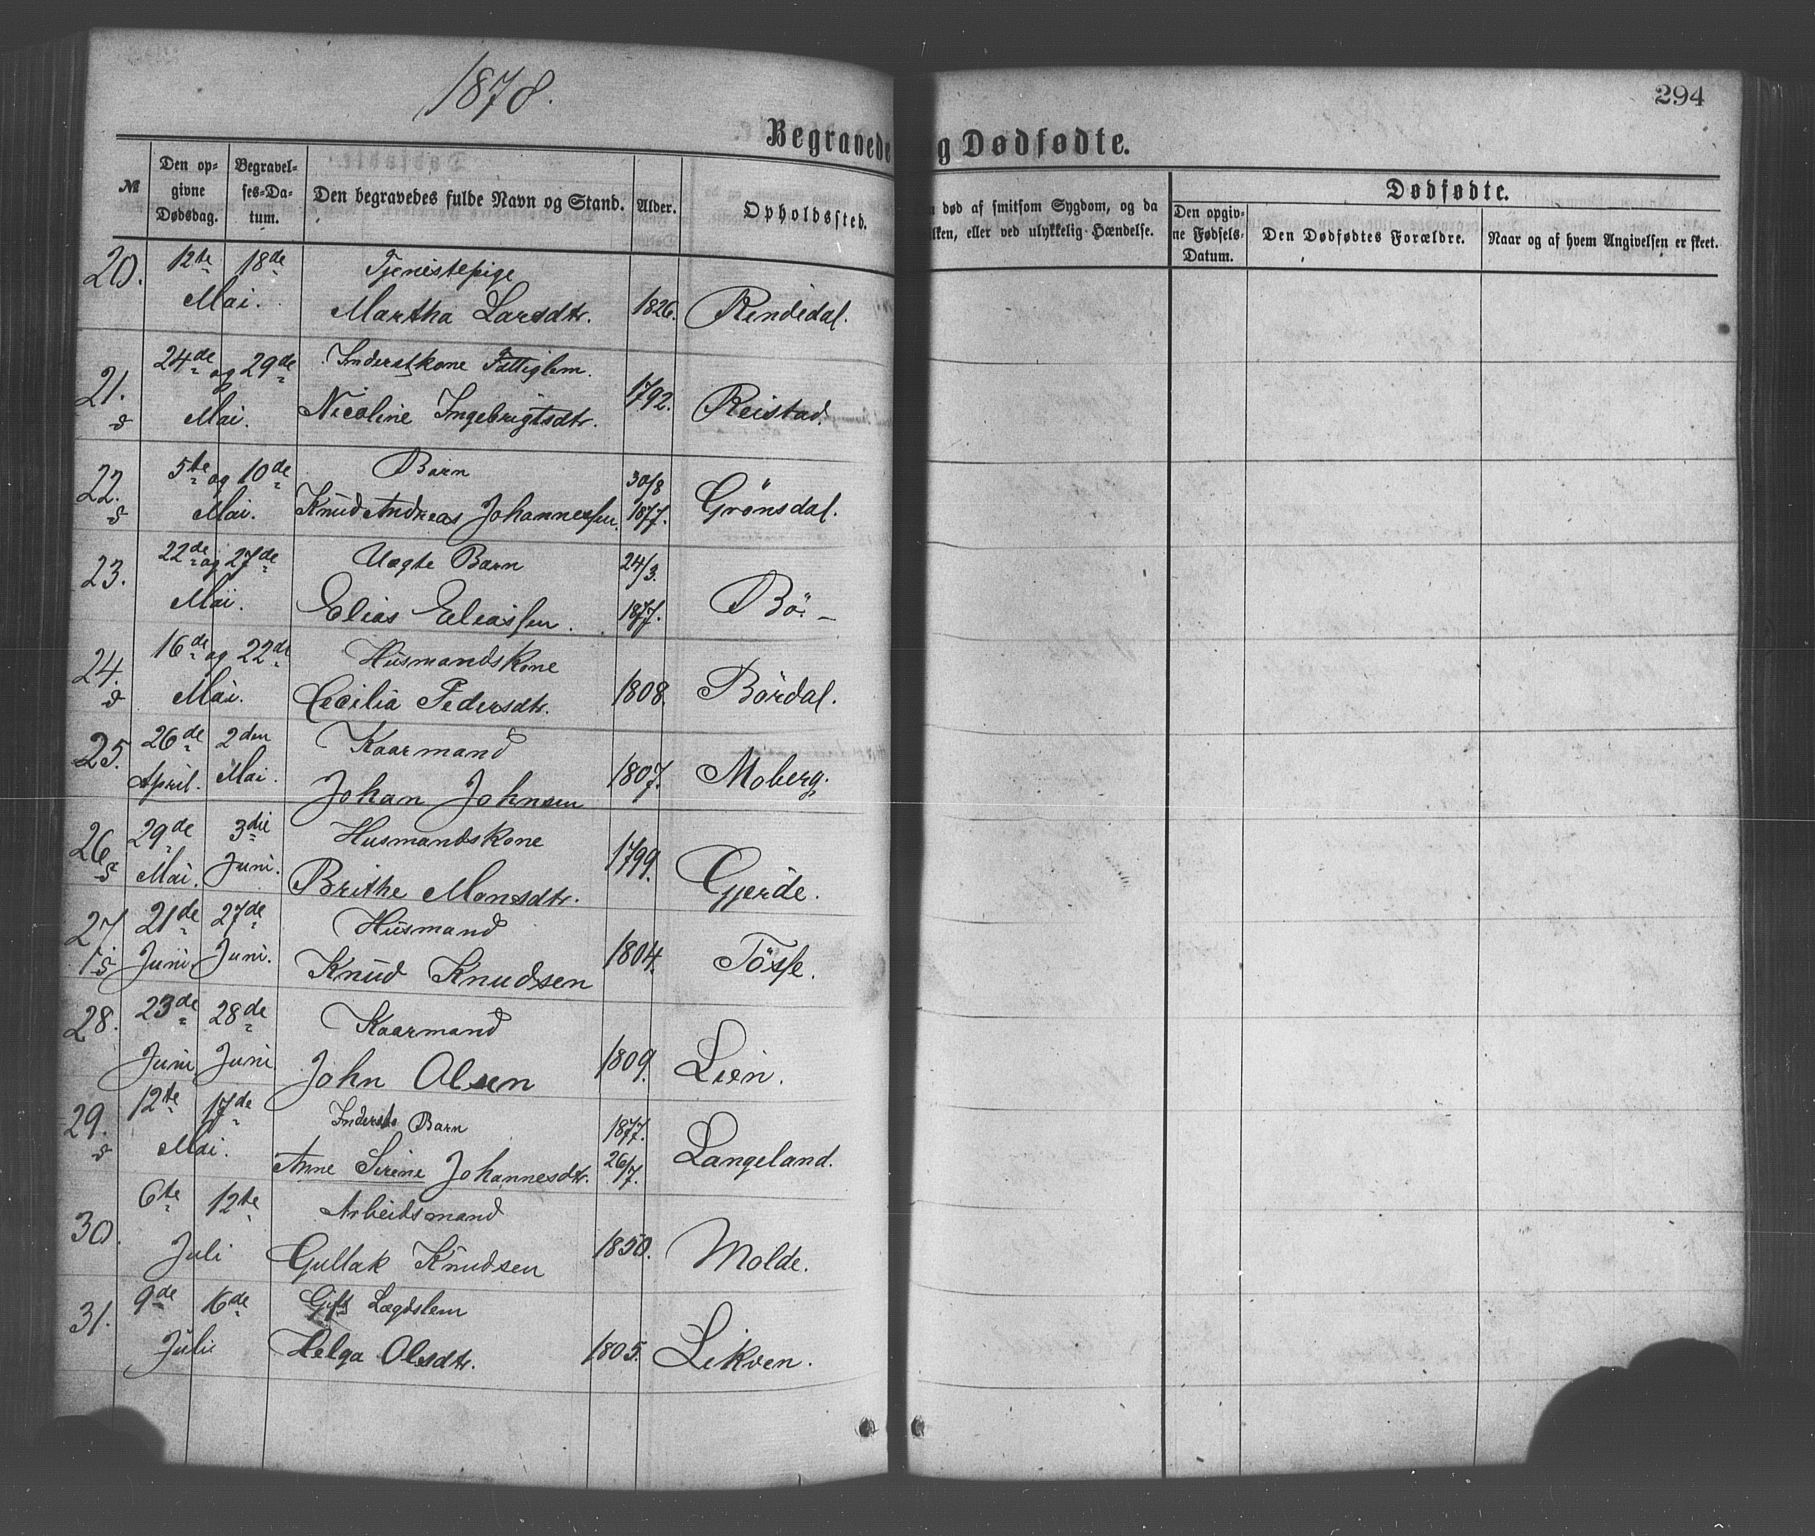 1878.
294
Begravede
g Dødfødte.
№
Den opgivne Dødsdag.
Begravelses-Datum.
Den begravedes fulde Navn og Stand.
Alder.
Opholdssted.
død af smitsom Sygdom, og da
lken, eller ved ulykkelig Hændelse.
Dødfødte.
Den opgivne Fødsels-Datum.
Den Dødfødtes Forældre.
Naar og af hvem Angivelsen er skeet.
20. 12te 18de Tjenistepige
Mai. Martha Larsdtr. 1826. Rendedal.
21. 24de og 29de Inderstkone Fattiglem.
d Mai. Nicoline Ingebrigtsdtr. 1792. Reistad.
22. 5te og 10de Barn 30/8
d Mai. Knud Andreas Johannessen. 1877. Grønsdal.
23. 22de og 27de Uægte Barn 24/3.
Mai. Elias Eliassen. 1877. Bö. –
24. 16de og 22de Husmandskone
d Mai. Cecilia Pedersdtr. 1808. Bördal.
25. 26de 2den Kaarmand
April. Mai. Johan Johnsen 1807. Moberg.
26 29de 3die Husmandskone
d Mai. Juni. Brithe Monsdtr. 1799. Gjerde.
27 21de 27de Husmand
Juni. Juni. Knud Knudsen 1804. Tösse.
28. 23de 28de Kaarmand
Juni Juni John Olsen 1809. Lien.
29. 12te 17de Inderste Barn 1877.
d Mai. Anne Serine Johannesdtr. 26/7. Langeland.
30. 6te 12te Arbeidsmand
Juli Gullak Knudsen 1850. Molde.
31. 9de 16de Gift Lægdslem
Juli Helga Olsdtr. 1805. Likven.